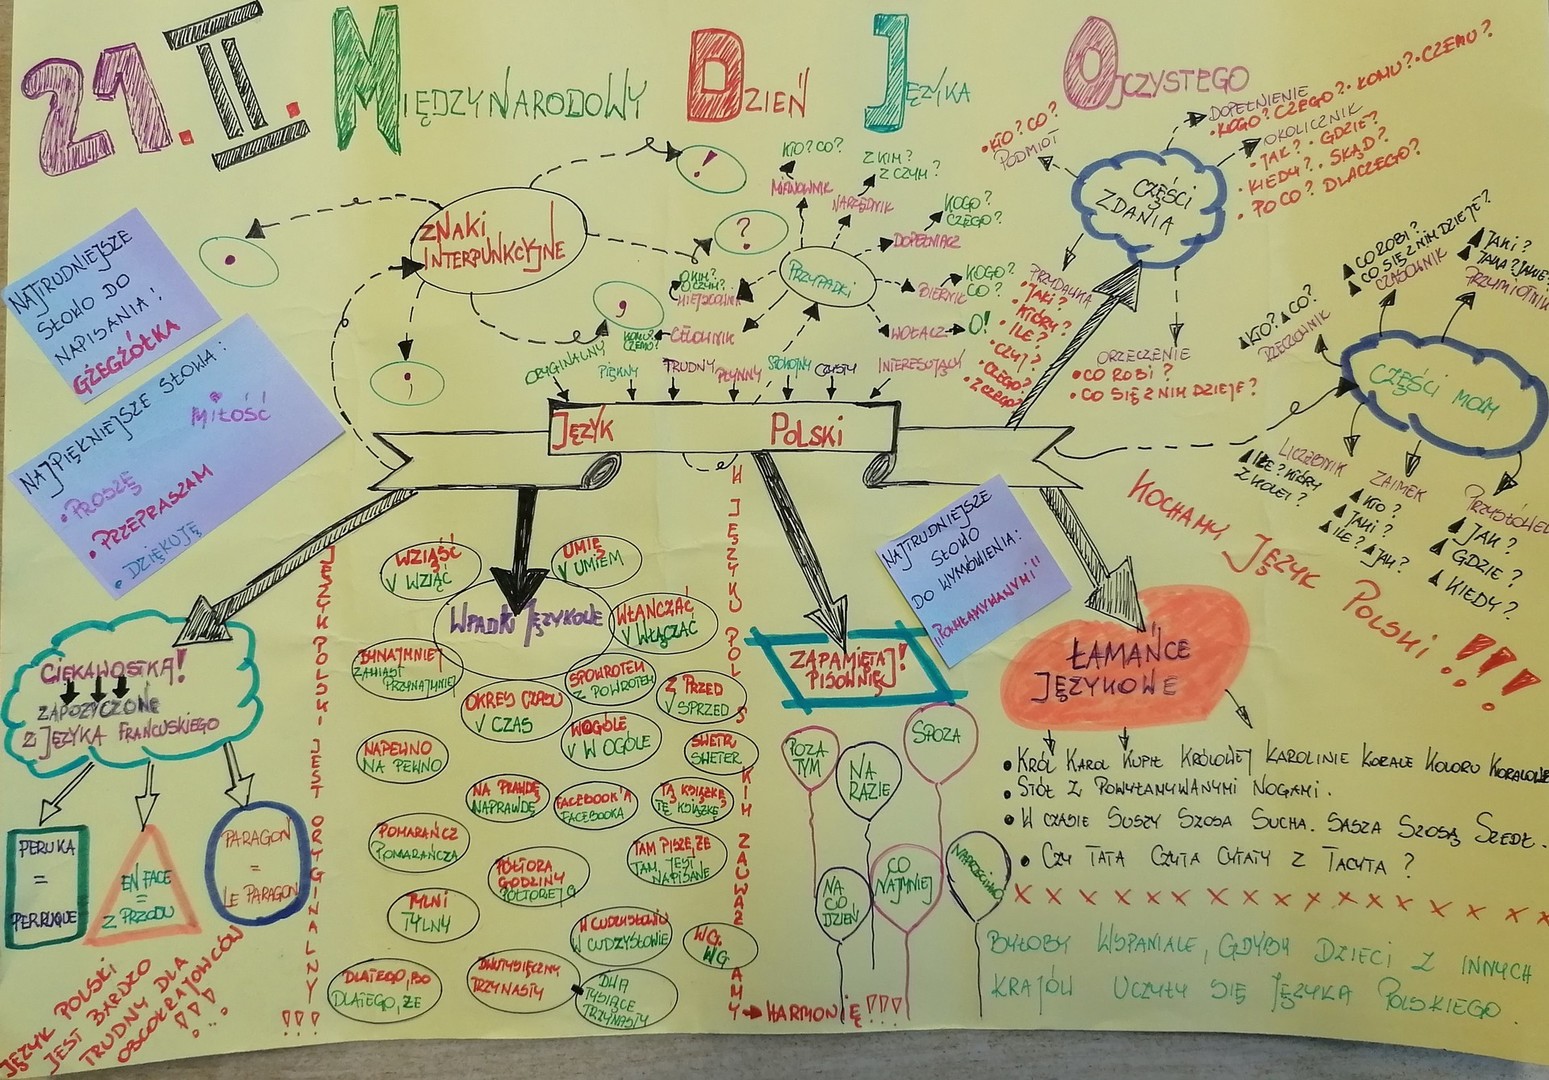 21.II. MIĘDZYNARODOWY DZIEŃ JĘZYKA OJCZYSTEGO
NAJTRUDNIEJSZE
SŁOWO DO
NAPISANIA:
GŻEGŻÓŁKA
NAJPIĘKNIEJSZE SŁOWA:
MIŁOŚĆ
• PROSZĘ
• PRZEPRASZAM
• DZIĘKUJĘ
ZNAKI
INTERPUNKCYJNE
.
!
?
,
;
PRZYPADKI
KTO? CO?
MIANOWNIK
Z KIM?
Z CZYM?
NARZĘDNIK
KOGO?
CZEGO?
DOPEŁNIACZ
KOGO?
CO?
BIERNIK
WOŁACZ
O!
O KIM?
O CZYM?
MIEJSCOWNIK
CELOWNIK
KOMU?
CZEMU?
CZĘŚCI
ZDANIA
• KTO? CO?
PODMIOT
DOPEŁNIENIE
• KOGO? CZEGO? • KOMU? • CZEMU?
OKOLICZNIK
• JAK? • GDZIE?
• KIEDY? • SKĄD?
• PO CO? DLACZEGO?
PRZYDAWKA
• JAKI?
• KTÓRY?
• ILE?
• CZYJ?
• CZEGO?
• Z CZEGO?
ORZECZENIE
• CO ROBI?
• CO SIĘ Z NIM DZIEJE?
CZĘŚCI MOWY
KTO? CO?
RZECZOWNIK
CO ROBI?
CO SIĘ Z NIM DZIEJE?
CZASOWNIK
JAKI?
JAKA? JAKIE?
PRZYMIOTNIK
LICZEBNIK
ILE? KTÓRY
Z KOLEI?
ZAIMEK
KTO?
JAKI?
ILE? JAK?
PRZYSŁÓWEK
JAK?
GDZIE?
KIEDY?
ORYGINALNY
PIĘKNY
TRUDNY
PŁYNNY
SPOKOJNY
CZYSTY
INTERESUJĄCY
JĘZYK POLSKI
KOCHAMY JĘZYK POLSKI!!!
NAJTRUDNIEJSZE
SŁOWO
DO WYMÓWIENIA:
"POWYŁAMYWANYMI"
CIEKAWOSTKA!
ZAPOŻYCZONE
Z JĘZYKA FRANCUSKIEGO
PERUKA
=
PERRUQUE
EN FACE
=
Z PRZODU
PARAGON
=
LE PARAGON
JĘZYK POLSKI
JEST BARDZO
TRUDNY DLA
OBCOKRAJOWCÓW
!!!
JĘZYK POLSKI JEST ORYGINALNY!!!
WPADKI JĘZYKOWE
WZIĄŚĆ
V WZIĄĆ
UMIĘ
V UMIEM
WŁANCZAĆ
V WŁĄCZAĆ
BYNAJMNIEJ
ZAMIAST
PRZYNAJMNIEJ
SPOWROTEM
Z POWROTEM
OKRES CZASU
V CZAS
Z PRZED
V SPRZED
WOGÓLE
V W OGÓLE
NAPEWNO
NA PEWNO
SWETR
SWETER
NA PRAWDĘ
NAPRAWDĘ
FACEBOOK'A
FACEBOOKA
TĄ KSIĄŻKĘ
TĘ KSIĄŻKĘ
POMARAŃCZ
POMARAŃCZA
PÓŁTORA
GODZINY
PÓŁTOREJ G
TAM PISZE, ŻE
TAM JEST
NAPISANE
TYLNI
TYLNY
W CUDZYSŁOWIU
W CUDZYSŁOWIE
WG.
WG
DLATEGO, BO
DLATEGO, ŻE
DWUTYSIĘCZNY
TRZYNASTY
DWA
TYSIĄCE
TRZYNASTY
W JĘZYKU POLSKIM ZAUWAŻAMY → HARMONIĘ!!!
ZAPAMIĘTAJ!
PISOWNIĘ!
POZA
TYM
NA
RAZIE
SPOZA
NA
CO
DZIEŃ
CO
NAJMNIEJ
NAPRZECIWKO
ŁAMAŃCE
JĘZYKOWE
• KRÓL KAROL KUPIŁ KRÓLOWEJ KAROLINIE KORALE KOLORU KORALOWE
• STÓŁ Z POWYŁAMYWANYMI NOGAMI.
• W CZASIE SUSZY SZOSA SUCHA. SASZA SZOSĄ SZEDŁ.
• CZY TATA CZYTA CYTATY Z TACYTA?
BYŁOBY WSPANIALE, GDYBY DZIECI Z INNYCH
KRAJÓW UCZYŁY SIĘ JĘZYKA POLSKIEGO.